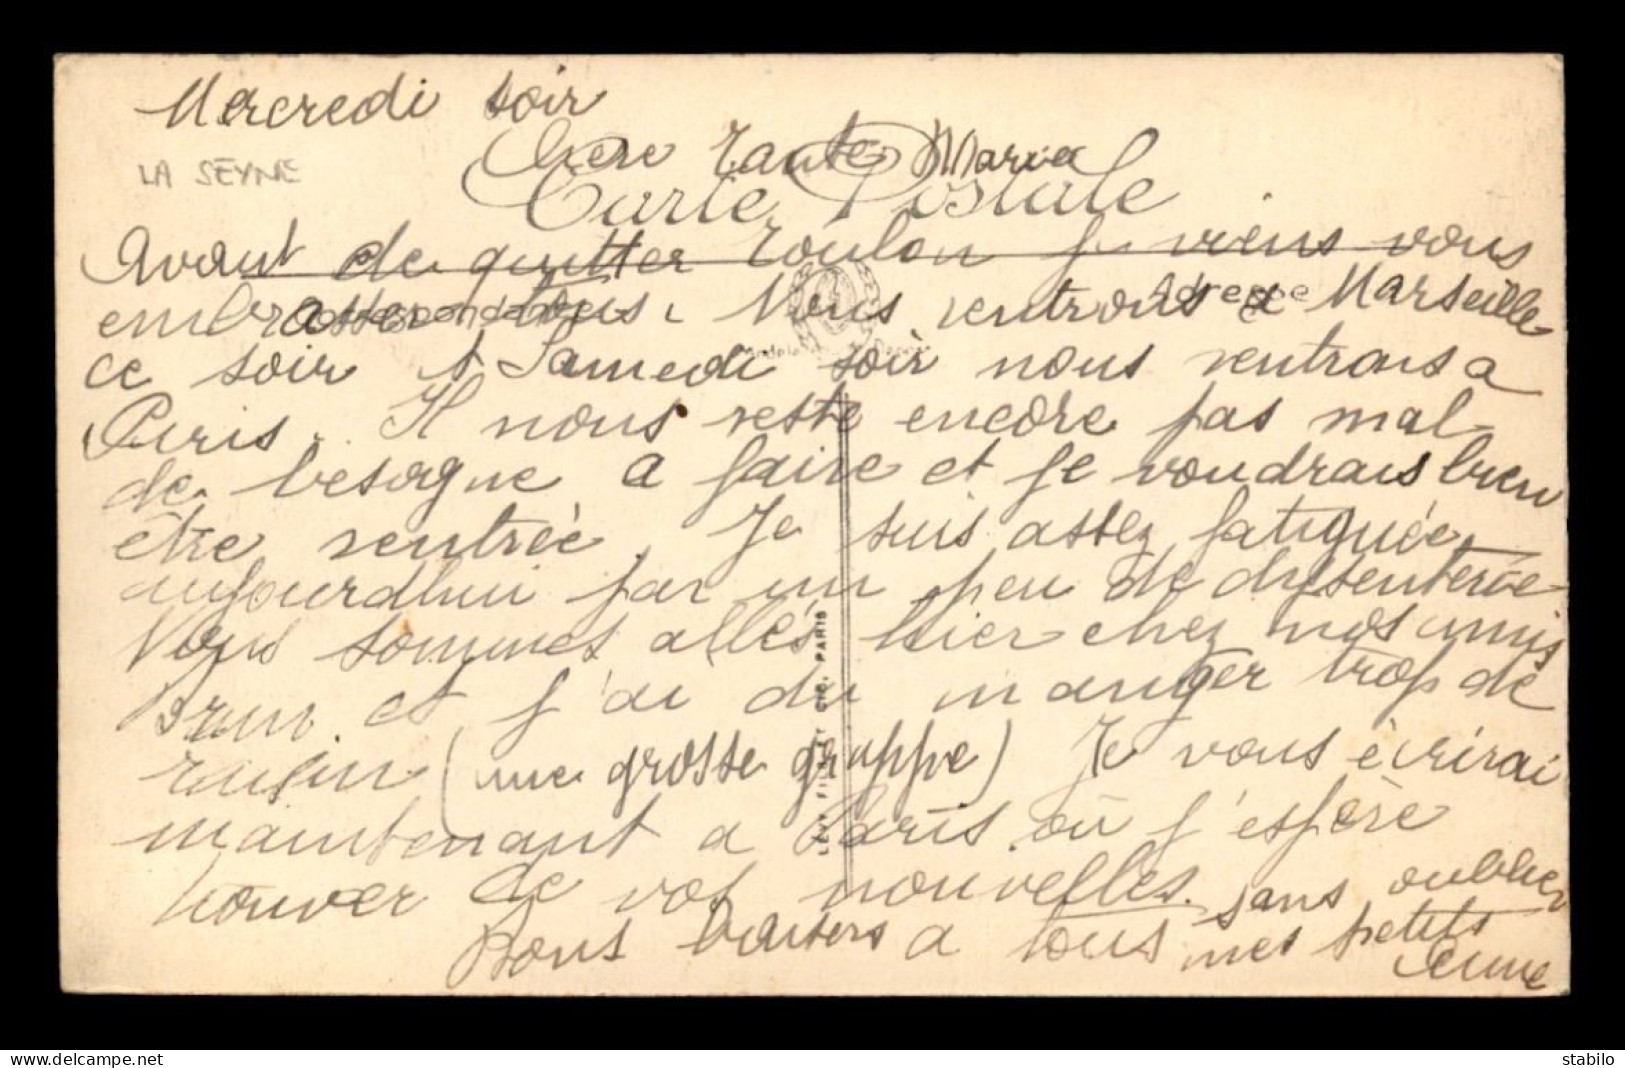 Mercredi soir
LA SEYNE
Chere Tante Maria
Carte Postale
Avant de quitter Toulon je viens vous
embrasser tous. Nous rentrons a Marseille
Correspondance
Adresse
ce soir et Samedi soir nous rentrons a
Paris. Il nous reste encore pas mal
de besogne a faire et je voudrais bien
être rentrée. Je suis assez fatiguée
aujourdhui par un peu de dysenterie
Nous sommes allés hier chez nos amis
Brun et j'ai du manger trop de
raisin (une grosse grappe) Je vous écrirai
maintenant a Paris où j'espère
trouver de vos nouvelles.
Bons baisers a tous sans oublier
mes petits
LÉVY FILS ET CIE, PARIS
stabilo